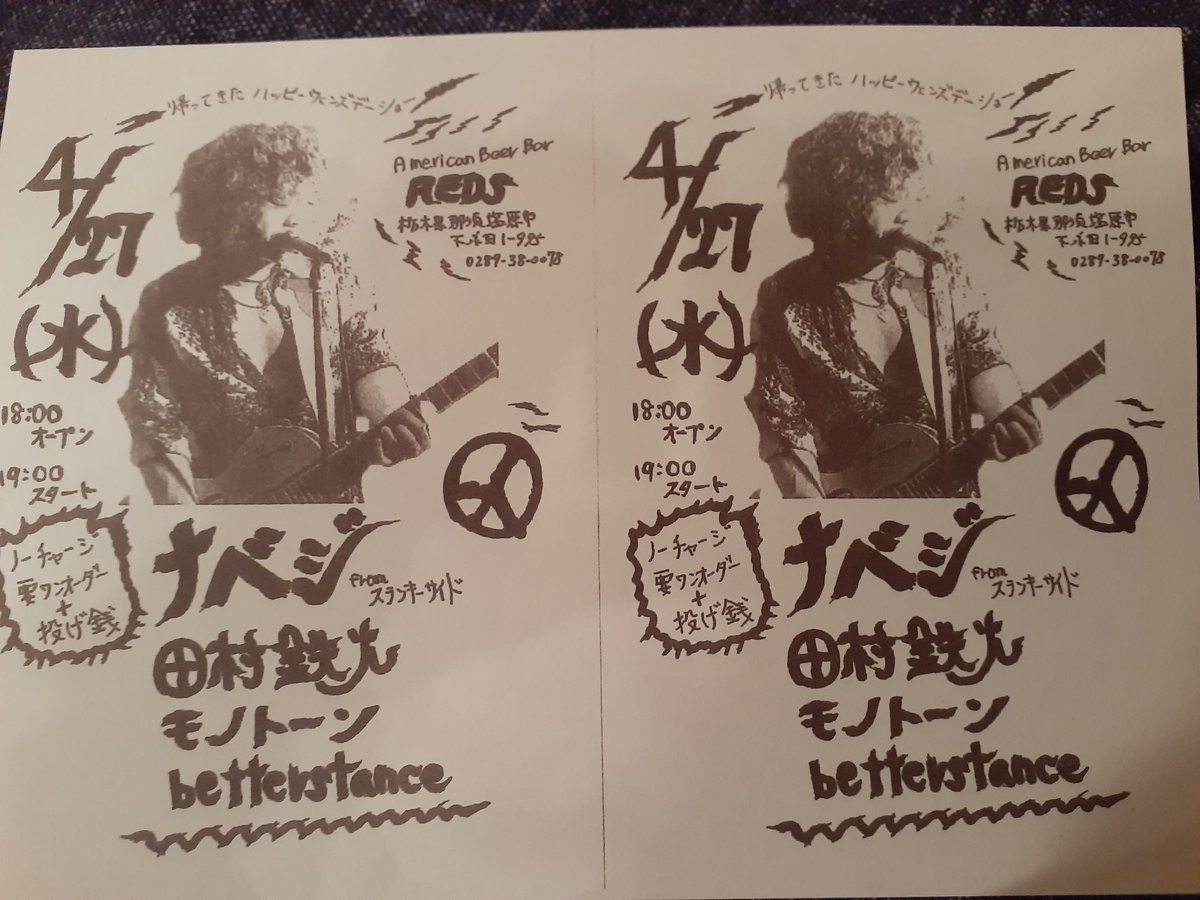 帰ってきた ハッピーウェンズデーショー
4/27
(水)
18:00
オープン
19:00
スタート
American Beer Bar
REDS
栃木県那須塩原市
0287-38-0078
ノーチャージ
要ワンオーダー
+
投げ銭
ナベジ
from
スランキーサイド
田村鉄火
モノトーン
betterstance
帰ってきた ハッピーウェンズデーショー
4/27
(水)
18:00
オープン
19:00
スタート
American Beer Bar
REDS
栃木県那須塩原市
0287-38-0078
ノーチャージ
要ワンオーダー
+
投げ銭
ナベジ
from
スランキーサイド
田村鉄火
モノトーン
betterstance